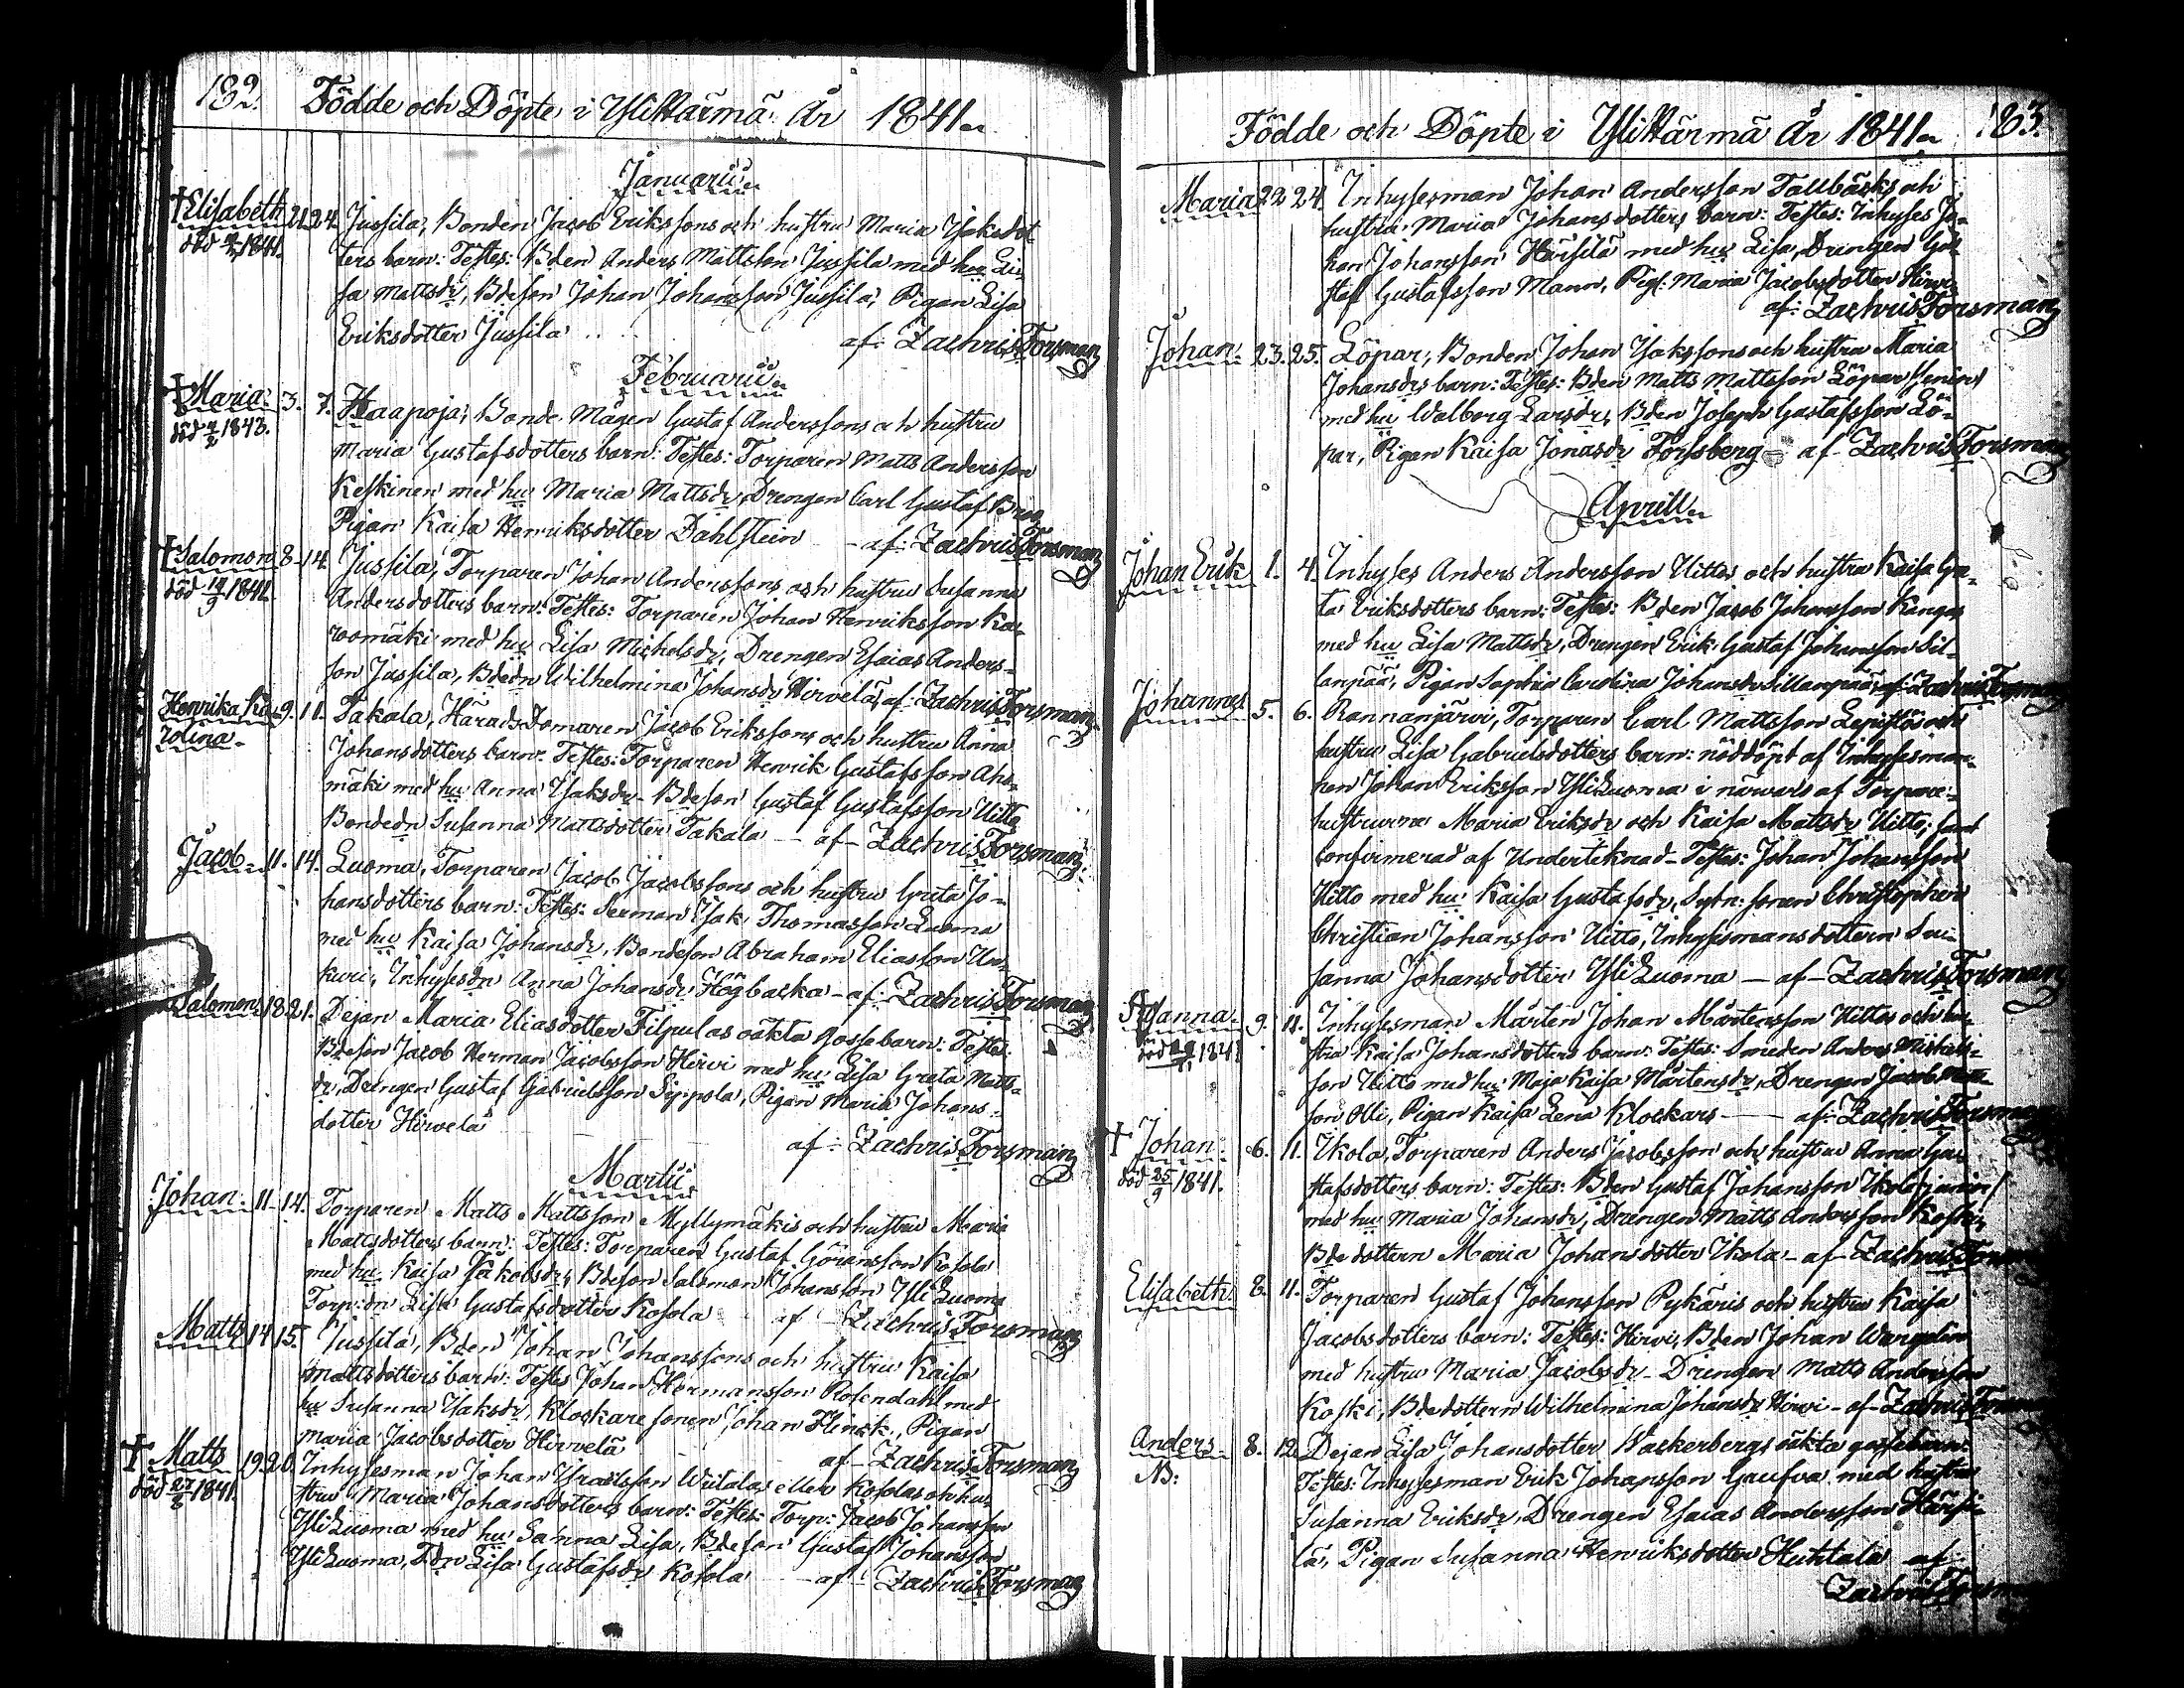 182. Födde och Döpte i Ylikärmä År 1841.
Januarii
†Elisabeth 21. 24. Jussila, Bonden Jacob Erikssons och hustru Maria Isaksdot-
död 1841. ters barn: Testes: Bden Anders Mattsson Jussila med hu Li-
sa Mattsdr, Bdeson Johan Johansson Jussila, Pigan Lisa
Eriksdotter Jussila .. af: Zachris Forsman
Februarii
†Maria. 3. 7. Haapoja, Bonde Mågen Gustaf Anderssons och hustru
död 1843. Maria Gustafsdotters barn: Testes: Torparen Matts Andersson
Keskinen med hu Maria Mattsdr, Drengen Carl Gustaf
Pigan Kaisa Henriksdotter Dahlstein - af: Zachris Forsman
†Salomon 8. 14. Jussila, Torparen Johan Anderssons och hustru Susanna
död 14/9 1841. Andersdotters barn: Testes: Torparen Johan Henriksson Kar-
vomäki med hu Lisa Michelsdr, Drengen Esaias Anders-
son Jussila, Bdedn Wilhelmina Johansdr Hirvelä, af Zachris Forsman
Henrika Ka- 9. 11. Takala, Härads Domaren Jacob Erikssons och hustru Anna
rolina. Johansdotters barn: Testes: Torparen Henrik Gustafsson Aho-
mäki med hu Anna Isaksdr - Bdeson Gustaf Gustafsson Uitto
Bondedn Susanna Mattsdotter Takala - af - Zachris Forsman
Jacob 11. 14. Luoma, Torparen Jacob Jacobssons och hustru Greta Jo-
hansdotters barn: Testes: Sexman Isak Thomasson Luoma
med hu Kaisa Johansdr, Bondeson Abraham Eliasson Un-
kuri, Inhysesdn Anna Johansdr Högbacka - af: Zachris Forsman
Salomon 18. 21. Dejan Maria Eliasdotter Filpulas oäkta Gossebarn: Testes:
Bdeson Jacob Herman Jacobsson Hirvi med hu Lisa Greta Matts-
dr, Drengen Gustaf Gabrielsson Sippola, Pigan Maria Johans-
dotter Hirvelä af: Zachris Forsman
Martii
Johan. 11. 14. Torparen Matts Mattsson Myllymäkis och hustru Maria
Mattsdotters barn: Testes: Torparen Gustaf Göransson Kosola
med hu Kaisa Jakobsdr, Bdeson Salomon Johansson YliLuoma
Torp: dn Lisa Gustafsdotter Kosola af Zachris Forsman
Matts 14. 15. Jussila, Bden Johan Johanssons och hustru Kaisa
Mattsdotters barn: Testes Johan Hermansson Rosendahl med
hu Susanna Isaksdr, Klockare sonen Johan Flinck, Pigan
Maria Jacobsdotter Hirvelä af - Zachris Forsman
† Matts 19. 20. Inhysesman Johan Israelsson Wiitalas eller Kosolas och hu-
död 1841. stru Maria Johansdotters barn: Testes: Torp: Jacob Johansson
YliLuoma med hu Sanna Lisa, Bdeson Gustaf Johansson
YliLuoma, Tdn Lisa Gustafsdr Kosola - af - Zachris Forsman
Födde och Döpte i Ylikärmä År 1841. 183.
Maria 22. 24. Inhysesman Johan Andersson Tallbacks och
hustru Maria Johansdotters barn: Testes: Inhyses Jo-
han Johansson Härsilä med hu Lisa, Drengen Gu-
staf Gustafsson Mann, Pig: Maria Jacobsdotter Hirvi
af: Zachris Forsman
Johan. 23. 25. Löpar, Bonden Johan Isakssons och hustru Maria
Johansdrs barn: Testes: Bden Matts Mattsson Löpar Senior
med hu Walborg Larsdr, Bden Joseph Gustafsson Lö-
par, Pigan Kaisa Jonasdr Forsberg - af - Zachris Forsman
Aprill
Johan Erik 1. 4. Inhyses Anders Andersson Uittos och hustru Kaisa Gre-
ta Eriksdotters barn: Testes: Bden Jacob Johansson Kangas
med hu Lisa Mattsdr, Drengen Erik Gustaf Johansson Sil-
lanpää, Pigan Sophia Carolina Johansdr Sillanpää, af Zachris Forsman
Johannes 5. 6. Rannanjärvi, Torparen Carl Mattsson Lepistös och
hustru Lisa Gabrielsdotters barn: nöddöpt af Inhysesman-
nen Johan Eriksson YliLuoma i närvaro af Torpare-
hustrurna Maria Eriksdr och Kaisa Mattsdr Uitto; samt
confirmerad af Undertecknad - Testes: Johan Johansson
Uitto med hu Kaisa Gustafsdr, Sytn: sonen Christopher
Christian Johansson Uitto, Inhysesmansdottern Su-
sanna Johansdotter YliLuoma - af - Zachris Forsman
Susanna. 9. 11. Inhysesman Mårten Johan Mårtensson Uittos och hu-
död 1841 stru Kaisa Johansdotters barn: Testes: Smeden Anders Michels-
son Uitto med hu: Maja Kaisa Mårtensdr, Drengen Jacob
son Olli, Pigan Kaisa Lena Klockars - af: Zachris Forsman
† Johan 6. 11. Ekola, Torparen Anders Jacobsson och hustru Anna Gu-
död 25/9 1841. stafsdotters barn: Testes: Bden Gustaf Johansson Ekola junior
med hu Maria Johansdr, Drengen Matts Andersson Koski,
Bde dottern Maria Johansdotter Ekola - af - Zachris Forsman
Elisabeth 8. 11. Torparen Gustaf Johansson Pykäris och hustru Kaisa
Jacobsdotters barn: Testes: Hirvi, Bden Johan Wargelin
med hustru Maria Jacobsdr - Drengen Matts Andersson
Koski, Bde dottern Wilhelmina Johansdr Hirvi - af - Zachris Forsman
Anders 8. 12. Dejan Lisa Johansdotter Wackerbergs oäkta gossebarn:
NB: Testes: Inhysesman Erik Johansson Gaufva med hustru
Susanna Eriksdr, Drengen Esaias Andersson Härsi-
lä, Pigan Susanna Henriksdotter Huhtala af
Zachris Forsman